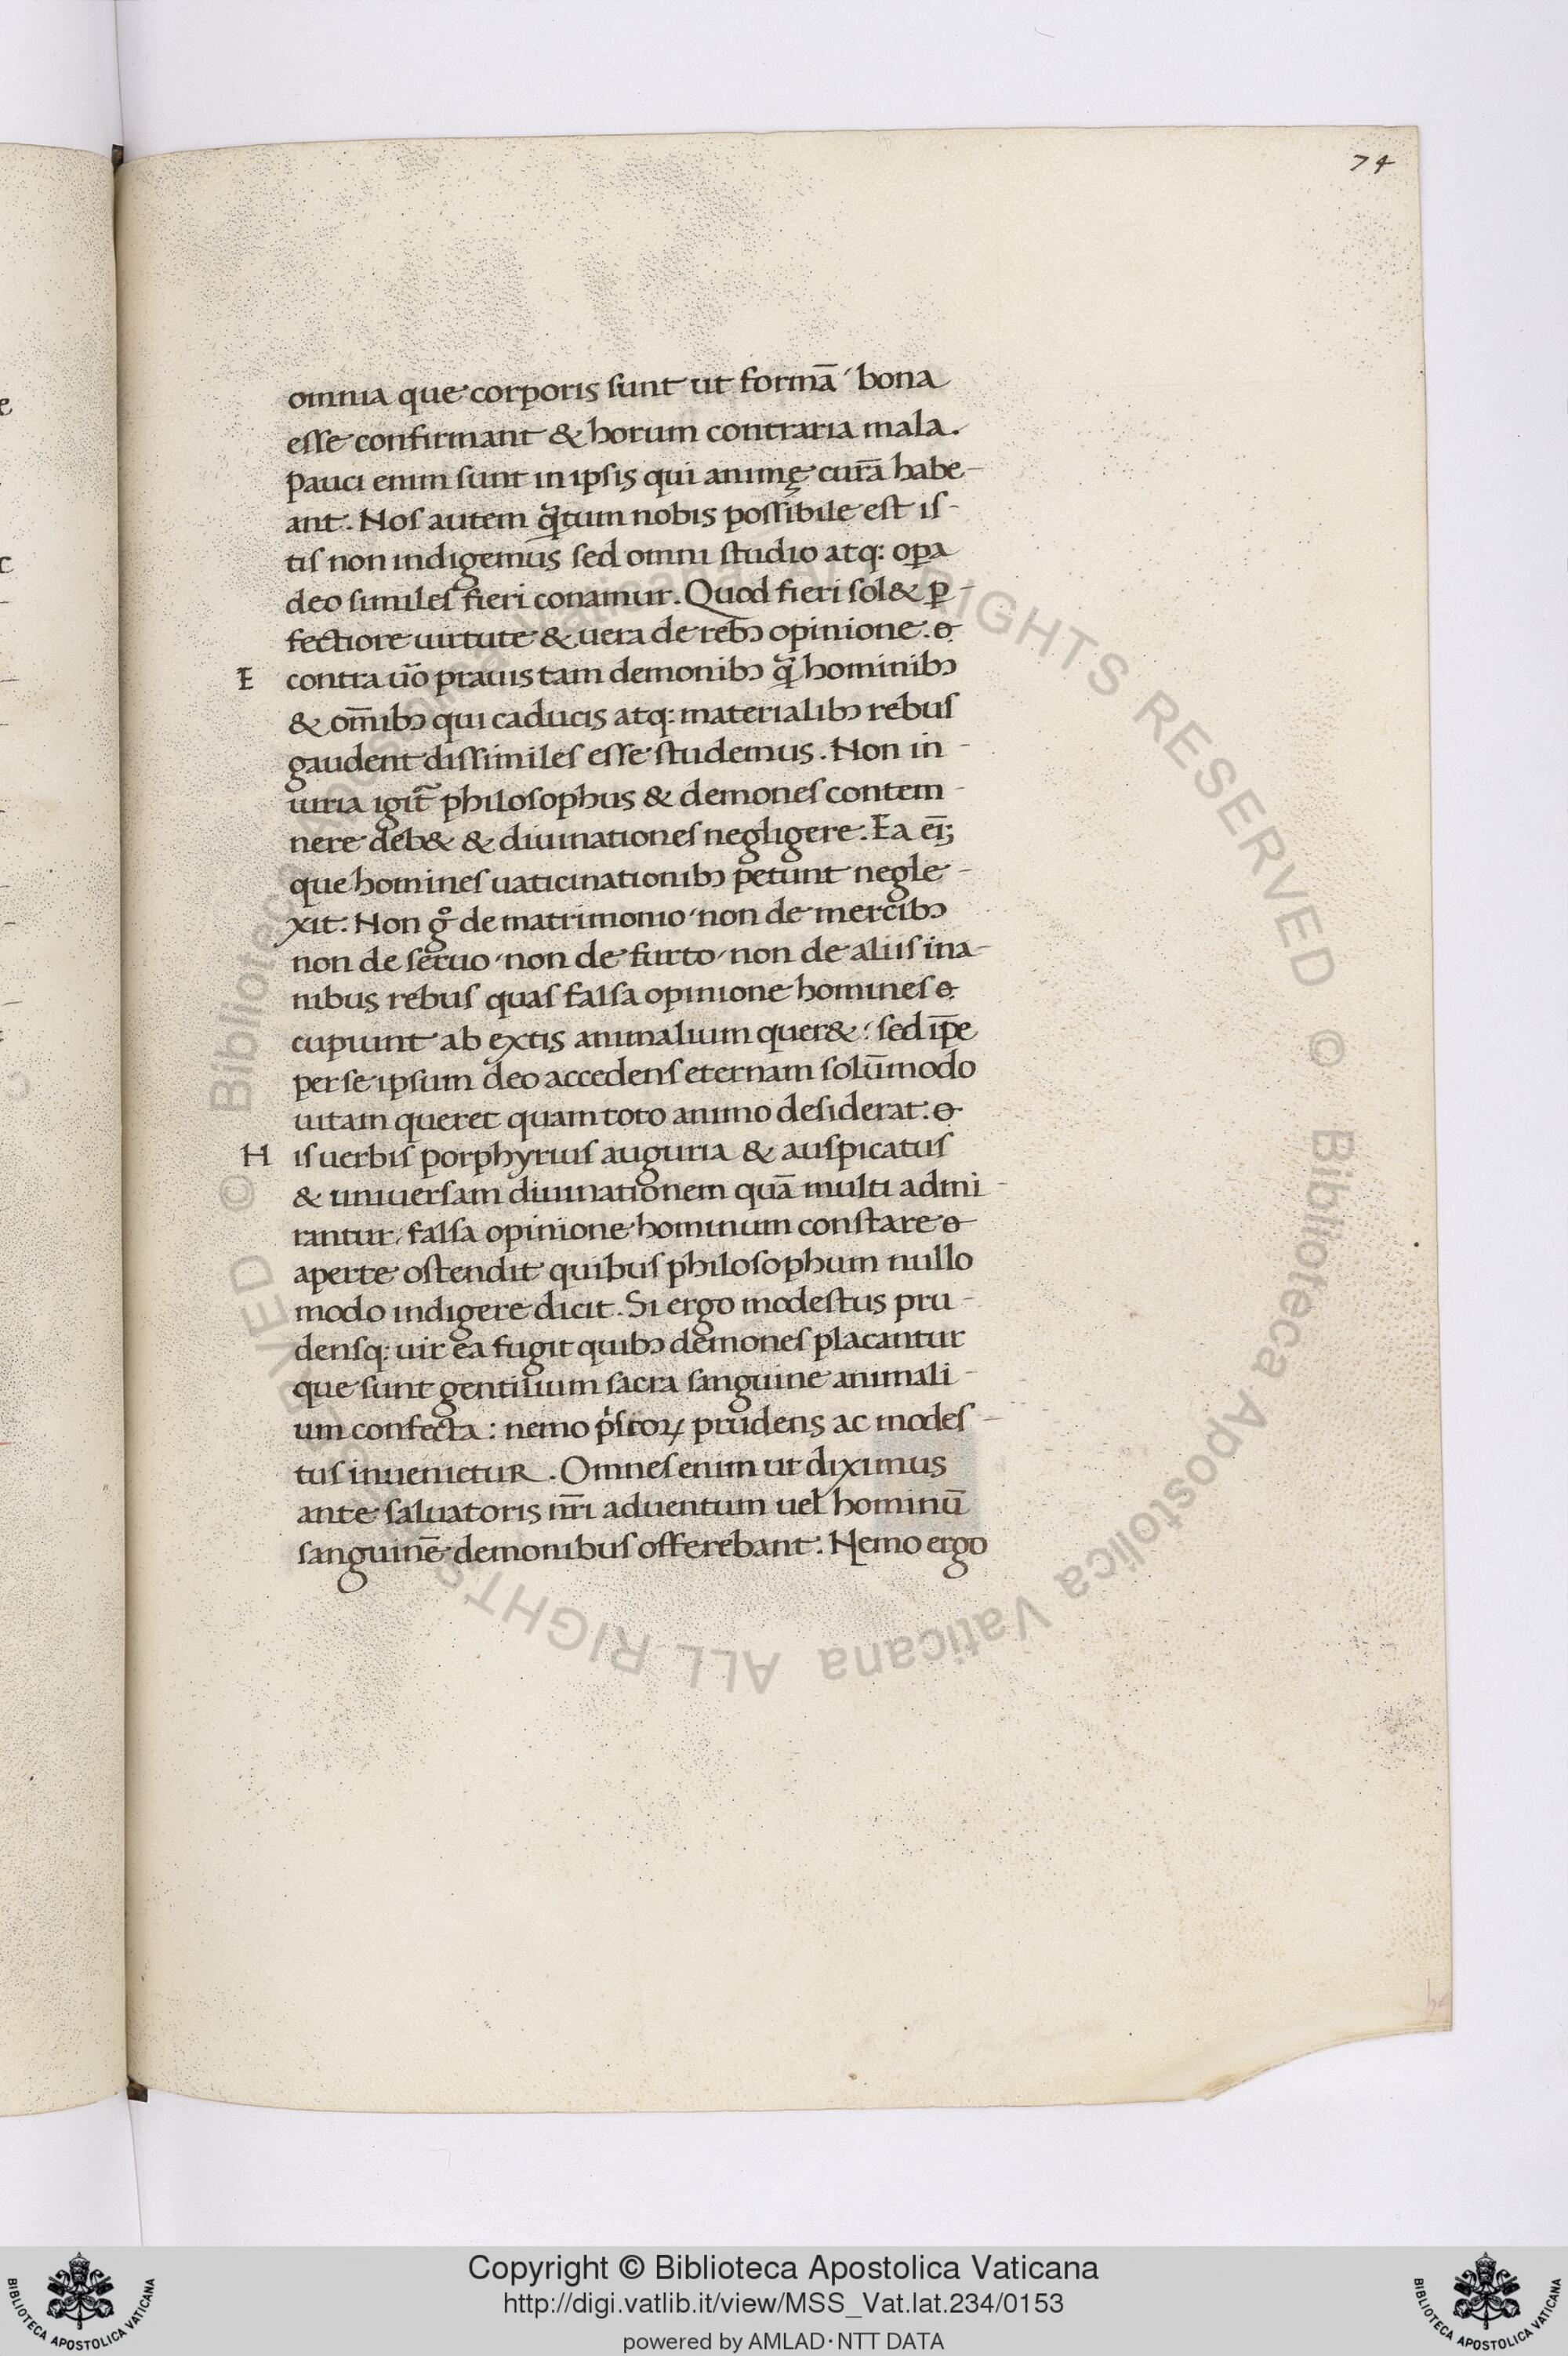 74
omnia que corporis sunt ut formā bona
esse confirmant & horum contraria mala.
Pauci enim sunt in ipsis qui animę curā habe-
ant. Nos autem q̄tum nobis possibile est is-
tis non indigemus sed omni studio atq: oꝑa
deo similes fieri conamur. Quod fieri sol& ꝑ-
fectiore uirtute & uera de rebꝯ opinione.
E contra ūo prauis tam demonibꝯ q̄ hominibꝯ
& om̄ibꝯ qui caducis atq: materialibꝯ rebus
gaudent dissimiles esse studemus. Non in-
iuria igit̄ philosophus & demones contem-
nere deb& & diuinationes negligere. Ea ei̅;
que homines uaticinationibꝯ petunt negle-
xit. Non gͦ de matrimonio non de mercibꝯ
non de seruo non de furto non de aliis ina-
nibus rebus quas falsa opinione homines
cupiunt ab extis animalium quer& sed ip̄e
per se ipsum deo accedens eternam solūmodo
uitam queret quam toto animo desiderat.
H is uerbis porphyrius auguria & auspicatus
& uniuersam diuinationem quā multi admi-
rantur falsa opinione hominum constare
aperte ostendit quibus philosophum nullo
modo indigere dicit. Si ergo modestus pru-
densq: uir ea fugit quibꝯ demones placantur
que sunt gentilium sacra sanguine animali-
um confecta: nemo p̓scoꝝ prudens ac modes-
tus inuenietur. Omnes enim ut diximus
ante saluatoris nr̄i aduentum uel hominū
sanguinē demonibus offerebant. Nemo ergo
© Biblioteca Apostolica Vaticana ALL RIGHTS RESERVED © Biblioteca Apostolica Vaticana ALL RIGHTS RESERVED
Copyright © Biblioteca Apostolica Vaticana
http://digi.vatlib.it/view/MSS_Vat.lat.234/0153
powered by AMLAD·NTT DATA
BIBLIOTECA APOSTOLICA VATICANA
BIBLIOTECA APOSTOLICA VATICANA